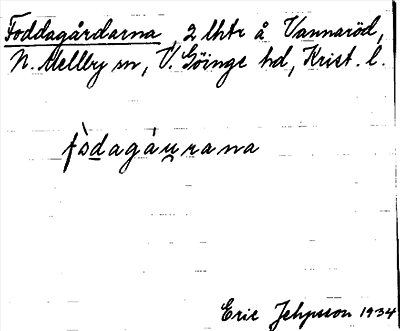 Foddagårdarna, 2 lhtr å Vannaröd,
N. Mellby sn, V. Göinge hd, Krist. l.
fòdagáurana
Eric Jehpsson 1934